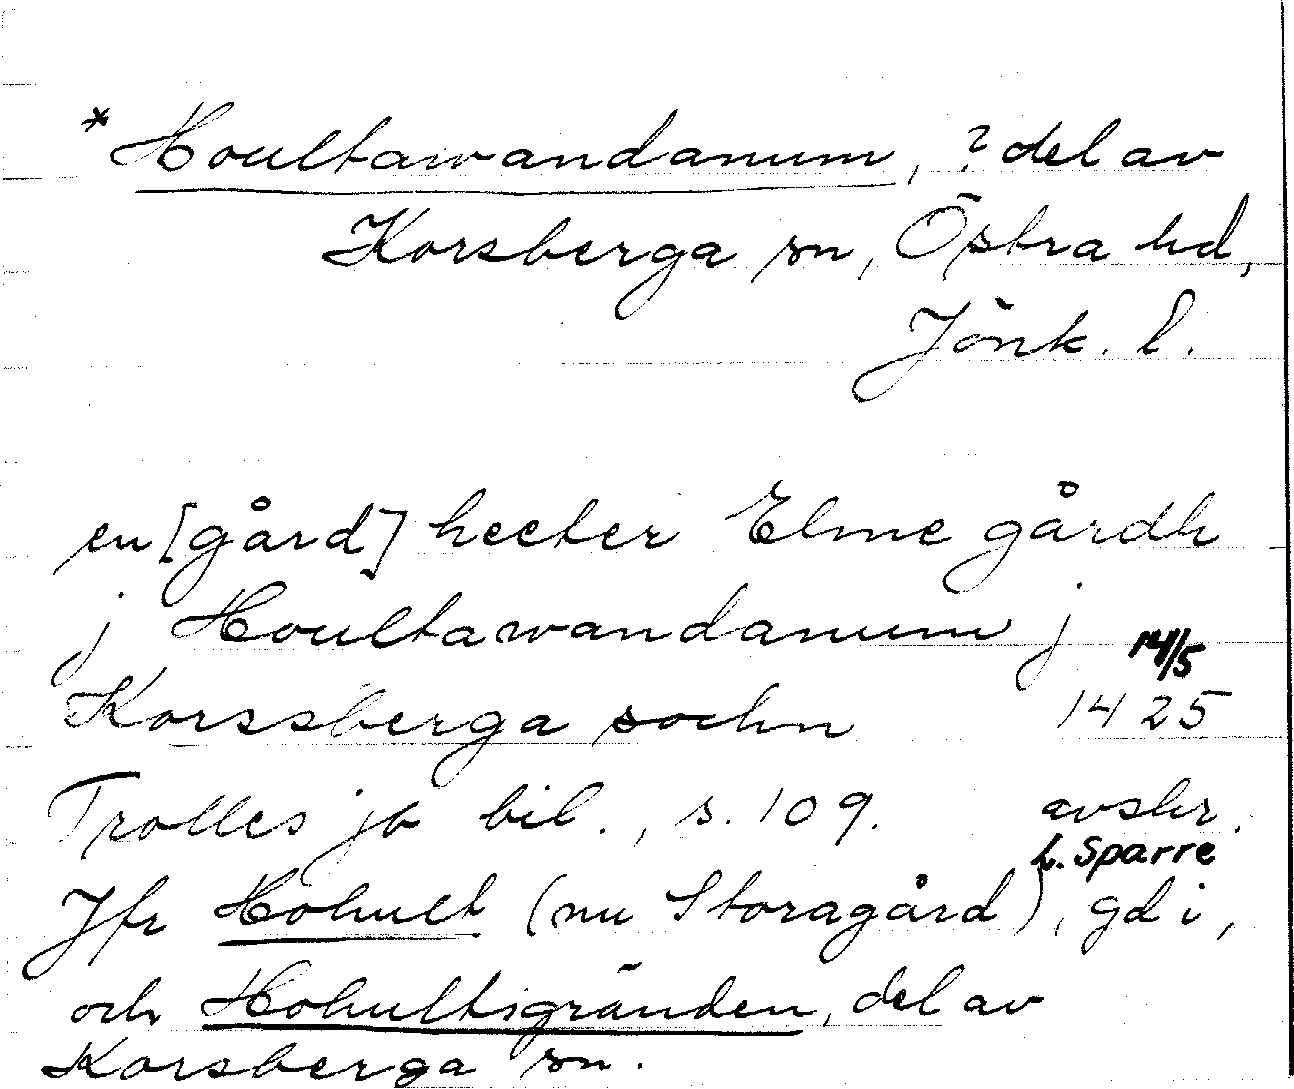 *Houltawandanum, ? del av
Korsberga sn, Östra hd,
Jönk. l.
en [gård] heeter Elme gårdh
j Houltawandanum j
14/5
Korssberga sochn 1425
Trolles jb bil., s. 109. avskr.
L. Sparre
Jfr Hohult (nu Storagård), gd i,
och Hohultsgränden, del av
Korsberga sn.